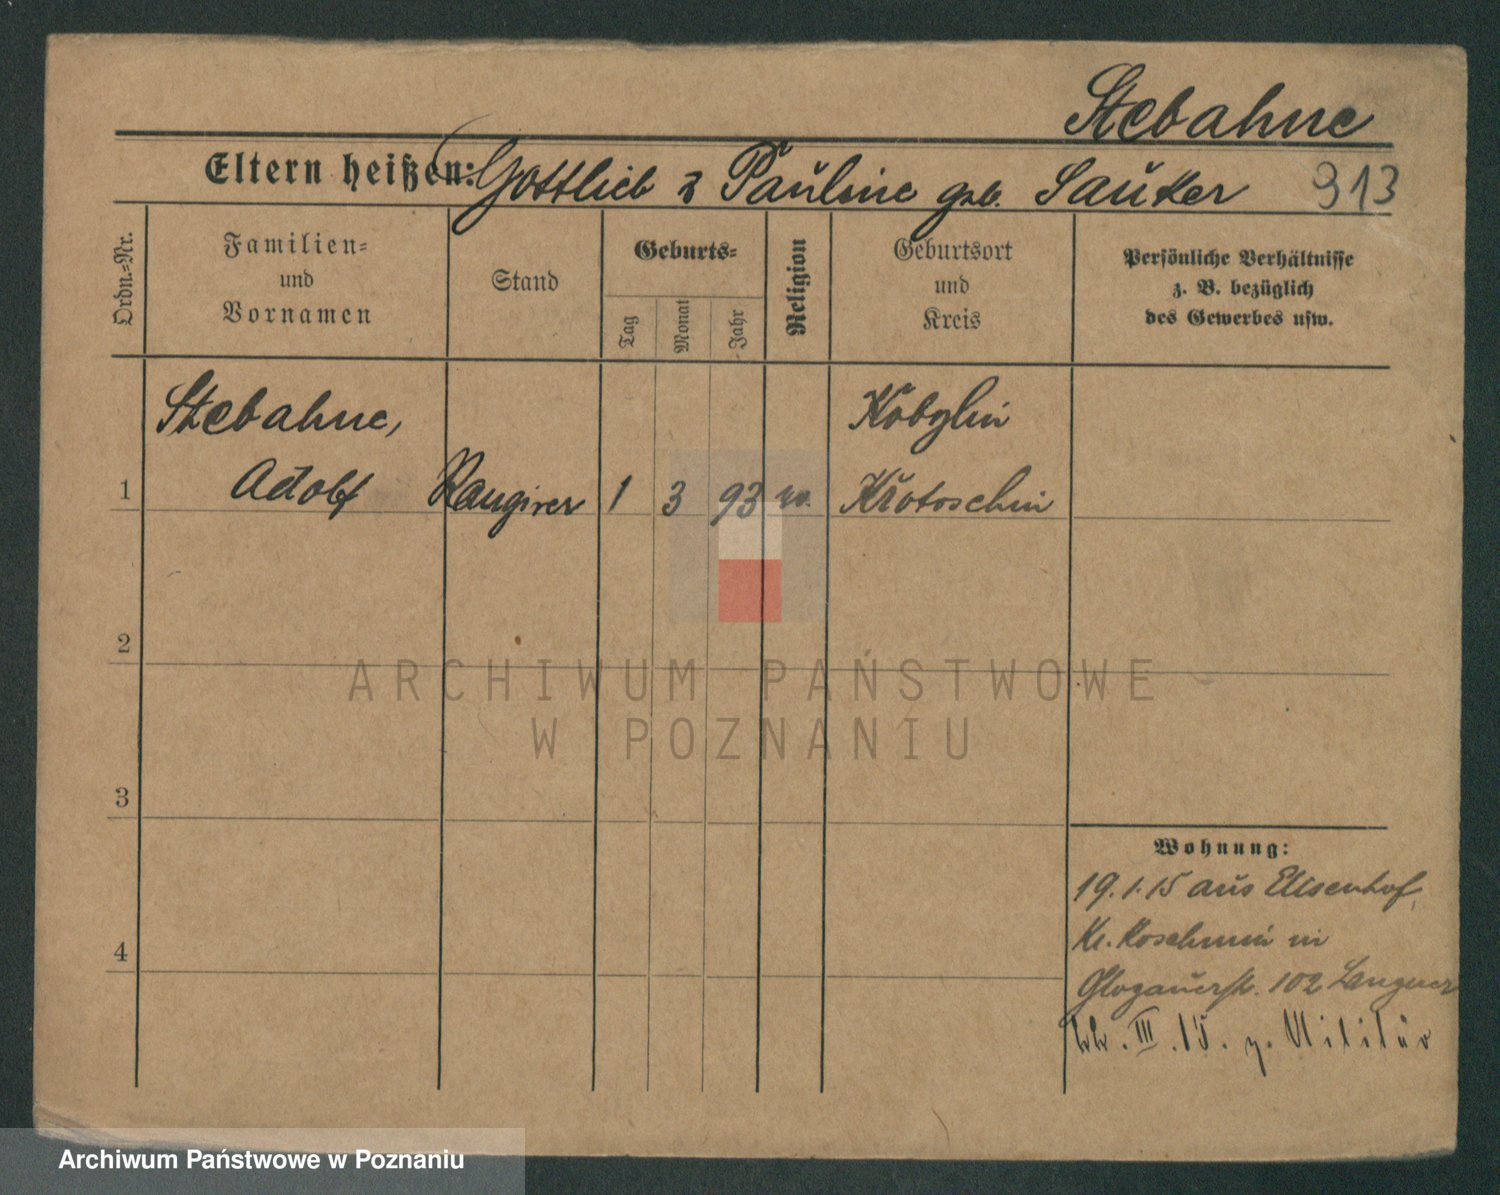 Stebahne
Eltern heißen: Gottlieb & Pauline geb. Sauker
913
Ordn.-Nr.
Familien-
und
Vornamen
Stand
Geburts-
Tag
Monat
Jahr
Religion
Geburtsort
und
Kreis
Persönliche Verhältnisse
z. B. bezüglich
des Gewerbes usw.
Stebahne,
Kobylin
1 Adolf Rangirer 1 3 93 Krotoschin
2
3
4
Wohnung:
19.1.15 aus Elisenhof,
Kr. Koschmin in
Glogauerstr. 102 Languer
III.15. z. Militär
ARCHIWUM PAŃSTWOWE
W POZNANIU
Archiwum Państwowe w Poznaniu